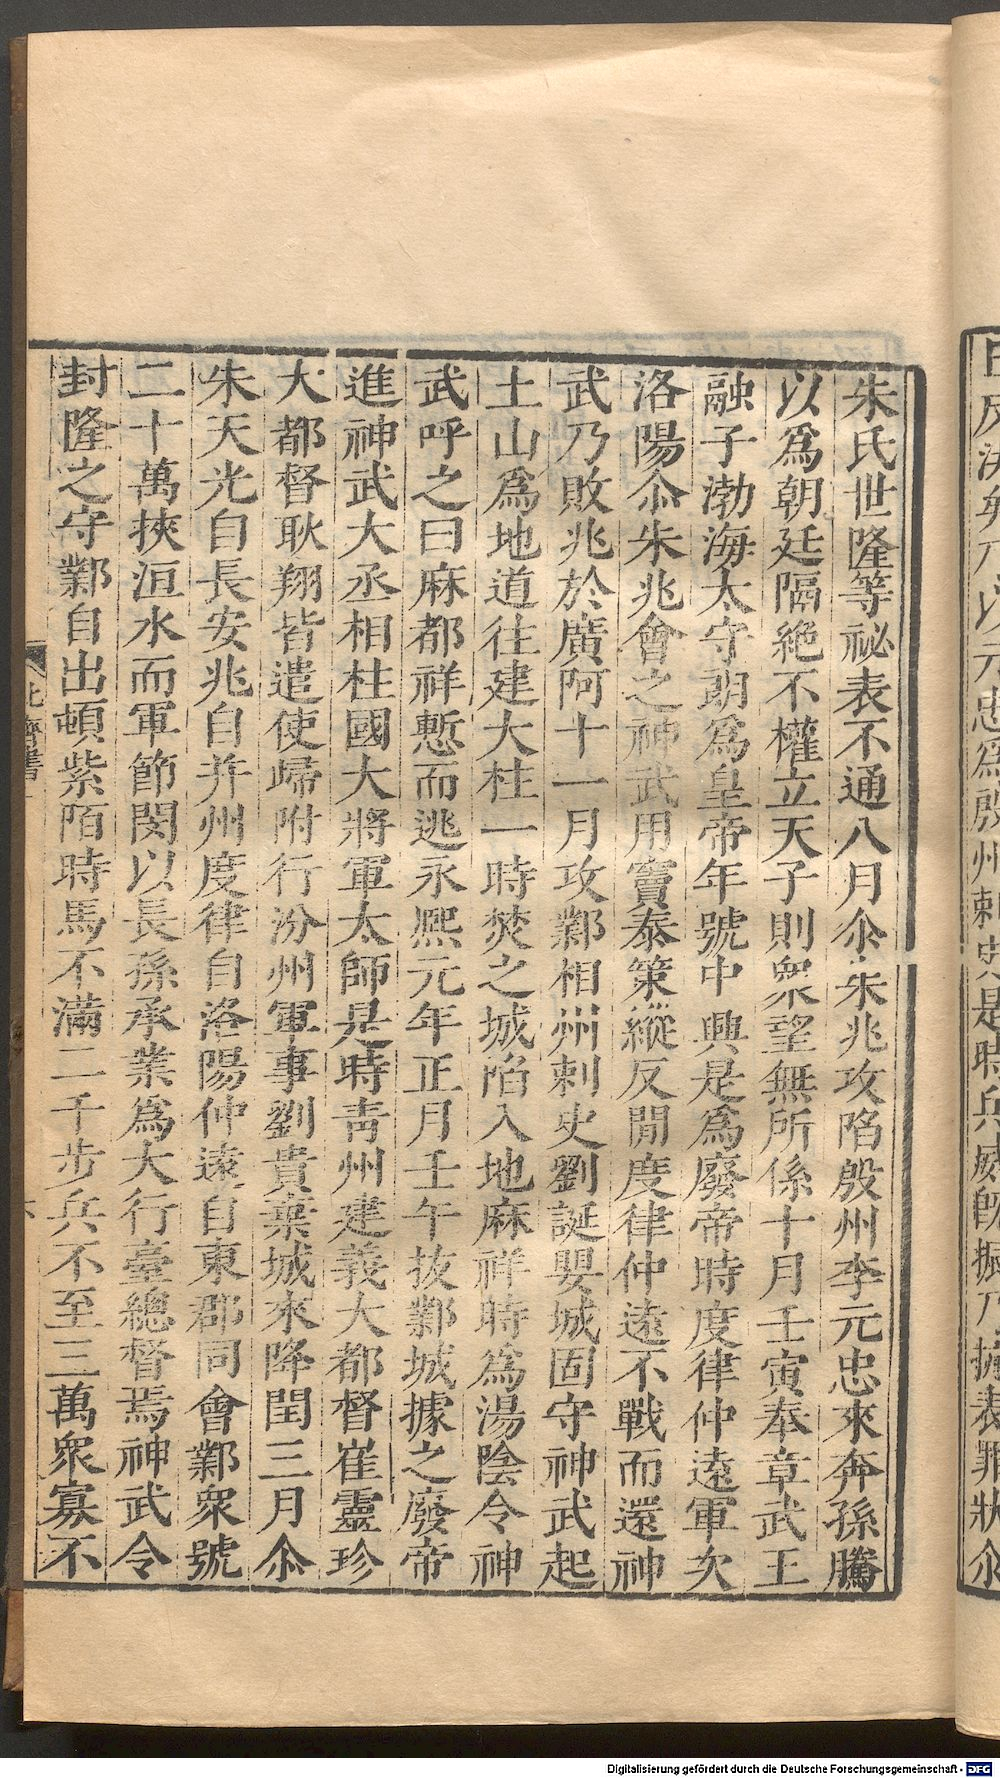 朱氏世隆等祕表不通八月尒朱兆攻陷殷州李元忠來奔孫騰
以爲朝廷隔絶不權立天子則衆望無所係十月壬寅奉章武王
融子渤海太守朗爲皇帝年號中興是爲廢帝時度律仲遠軍次
洛陽尒朱兆會之神武用竇泰策縱反間度律仲遠不戰而還神
武乃敗兆於廣阿十一月攻鄴相州刺史劉誕嬰城固守神武起
土山爲地道往建大柱一時焚之城陷入地麻祥時爲湯陰令神
武呼之曰麻都祥慙而逃永熙元年正月壬午拔鄴城據之廢帝
進神武大丞相柱國大將軍太師是時青州建義大都督崔靈珍
大都督耿翔皆遣使歸附行汾州軍事劉貴棄城來降閏三月尒
朱天光自長安兆自并州度律自洛陽仲遠自東郡同會鄴衆號
二十萬挾洹水而軍節閔以長孫承業爲大行臺總督焉神武令
封隆之守鄴自出頓紫陌時馬不滿二千步兵不至三萬衆寡不
北齊書一
元忠爲殷州刺史是時兵威旣振乃抗表罪狀尒
Digitalisierung gefördert durch die Deutsche Forschungsgemeinschaft - DFG